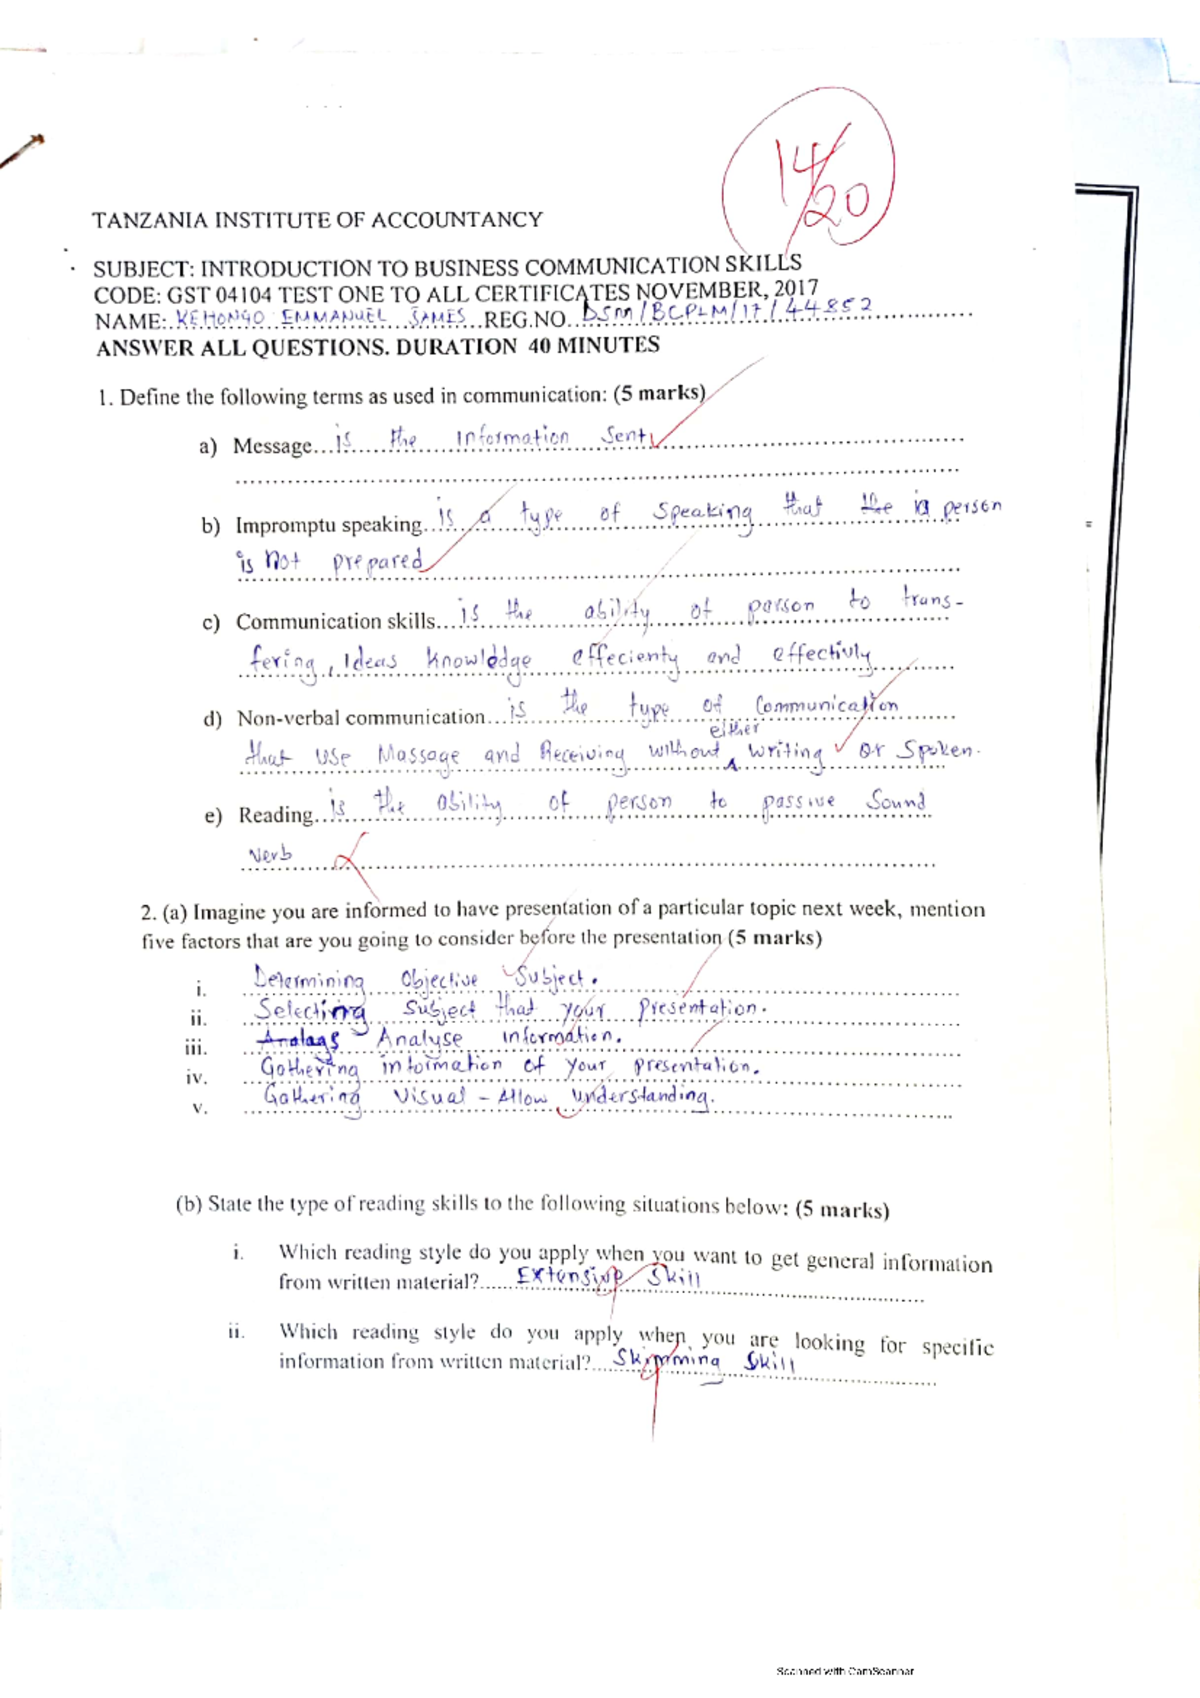 14/20
TANZANIA INSTITUTE OF ACCOUNTANCY
SUBJECT: INTRODUCTION TO BUSINESS COMMUNICATION SKILLS
CODE: GST 04104 TEST ONE TO ALL CERTIFICATES NOVEMBER, 2017
NAME: KEHONGO EMMANUEL JAMES REG.NO. DSM/BCPLM/17/44852
ANSWER ALL QUESTIONS. DURATION 40 MINUTES
1. Define the following terms as used in communication: (5 marks)
a) Message...is the Information Sent
b) Impromptu speaking...is a type of Speaking that the in person
is Not prepared
c) Communication skills...is the ability of parson to trans-
fering, Ideas Knowlddge effecienty and effectivly
d) Non-verbal communication...is the type of Communication
either
that use Massage and Receiving without writing or Spoken.
e) Reading...is the ability of person to passive Sound
Verb
2. (a) Imagine you are informed to have presentation of a particular topic next week, mention
five factors that are you going to consider before the presentation (5 marks)
i. Determining Objective Subject.
ii. Selecting Subject that your presentation.
iii. Analyse information.
iv. Gathering information of your presentation.
v. Gathering Visual - Allow understanding.
(b) State the type of reading skills to the following situations below: (5 marks)
i. Which reading style do you apply when you want to get general information
from written material?......Extensive Skill
ii. Which reading style do you apply when you are looking for specific
information from written material?...Skimming Skill
Scanned with CamScanner